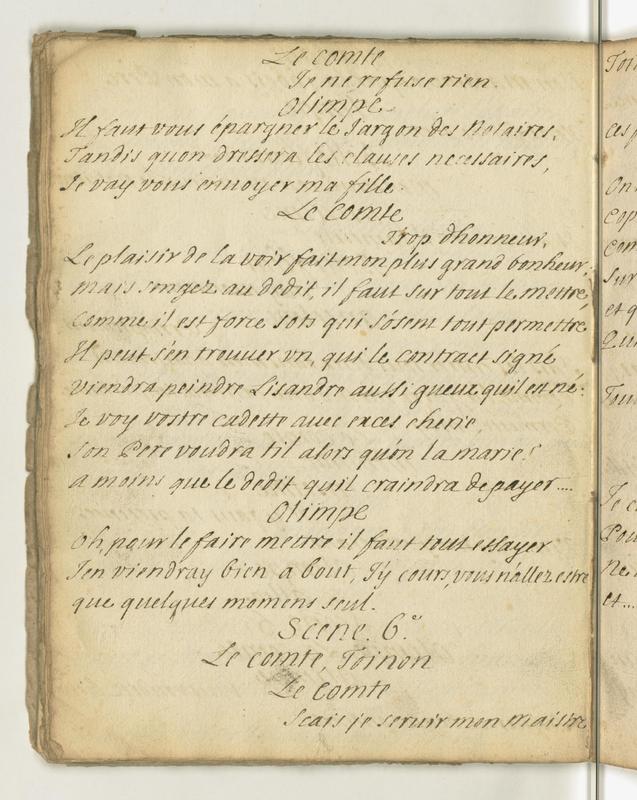 Le comte
Je ne refuse rien.
Olimpe
Il faut vous épargner le Jargon des Notaires,
Tandis quon dressera les clauses necessaires,
Je vay vous ennoyer ma fille.
Le Comte
Trop dhonneur,
Le plaisir de la voir fait mon plus grand bonheur,
mais songez au dedit, il faut sur tout le mettre,
comme il est force sots qui s'osent tout permettre
Il peut s'en trouuer vn, qui le contract signé
viendra peindre Lisandre aussi gueux quil est né.
Je voy vostre cadette auec exces cherie,
son Pere voudra til alors qu'on la marie?
a moins que le dedit quil craindra de payer....
Olimpe
Oh, pour le faire mettre il faut tout essayer
J'en viendray bien a bout, J'y cours, vous n'allez estre
que quelques momens seul.
Scene. 6.e
Le comte, Toinon
Le Comte
Scais je seruir mon maistre
Toi
ces
On
cop
com
sur
et q
Qu
Tou
Je c
Pou
Ne
et....